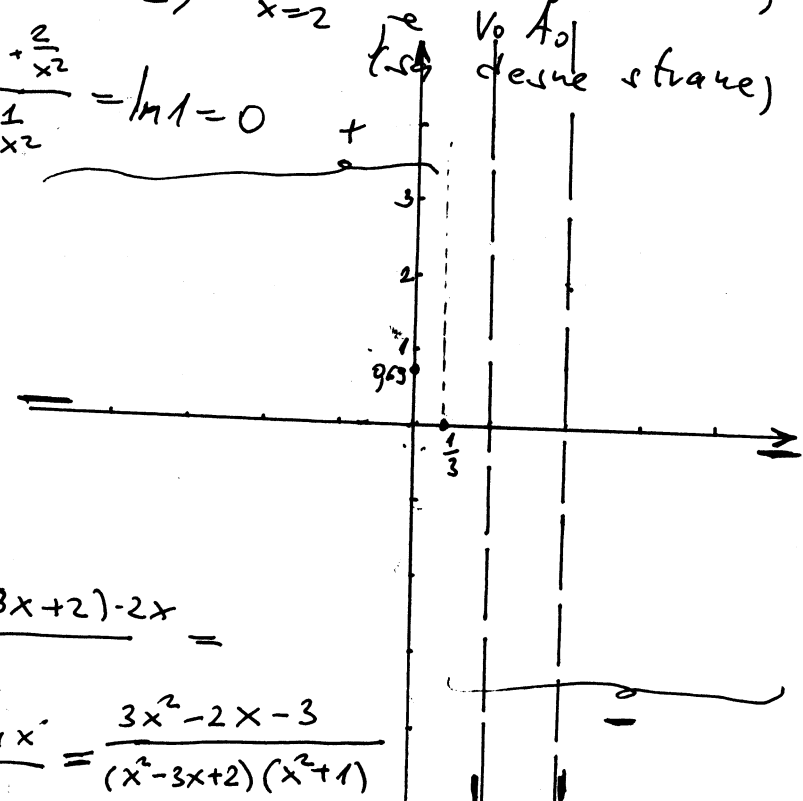 x=2
V₀ A₀
(sa desne strane)
+ 2/x²
1/x² = ln1 = 0
+
3
2
1
0,69
1/3
3x+2)·2x =
−
x = (3x²−2x−3)/((x²−3x+2)(x²+1))